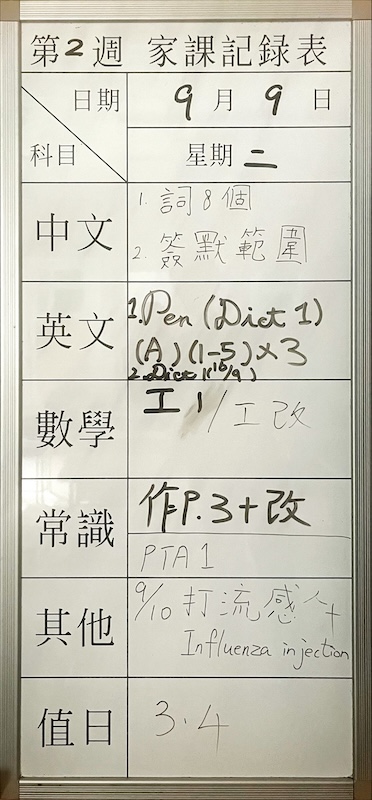 第2週 家課記録表
日期 9月9日
科目 星期二
中文 1. 詞8個
2. 簽默範圍
英文 1. Pen (Dict 1)
(A) (1-5) x 3
2. Dict 1 (16/9)
數學 工1/工改
常識 作P.3+改
PTA 1
其他 9/10 打流感針
Influenza injection
值日 3.4